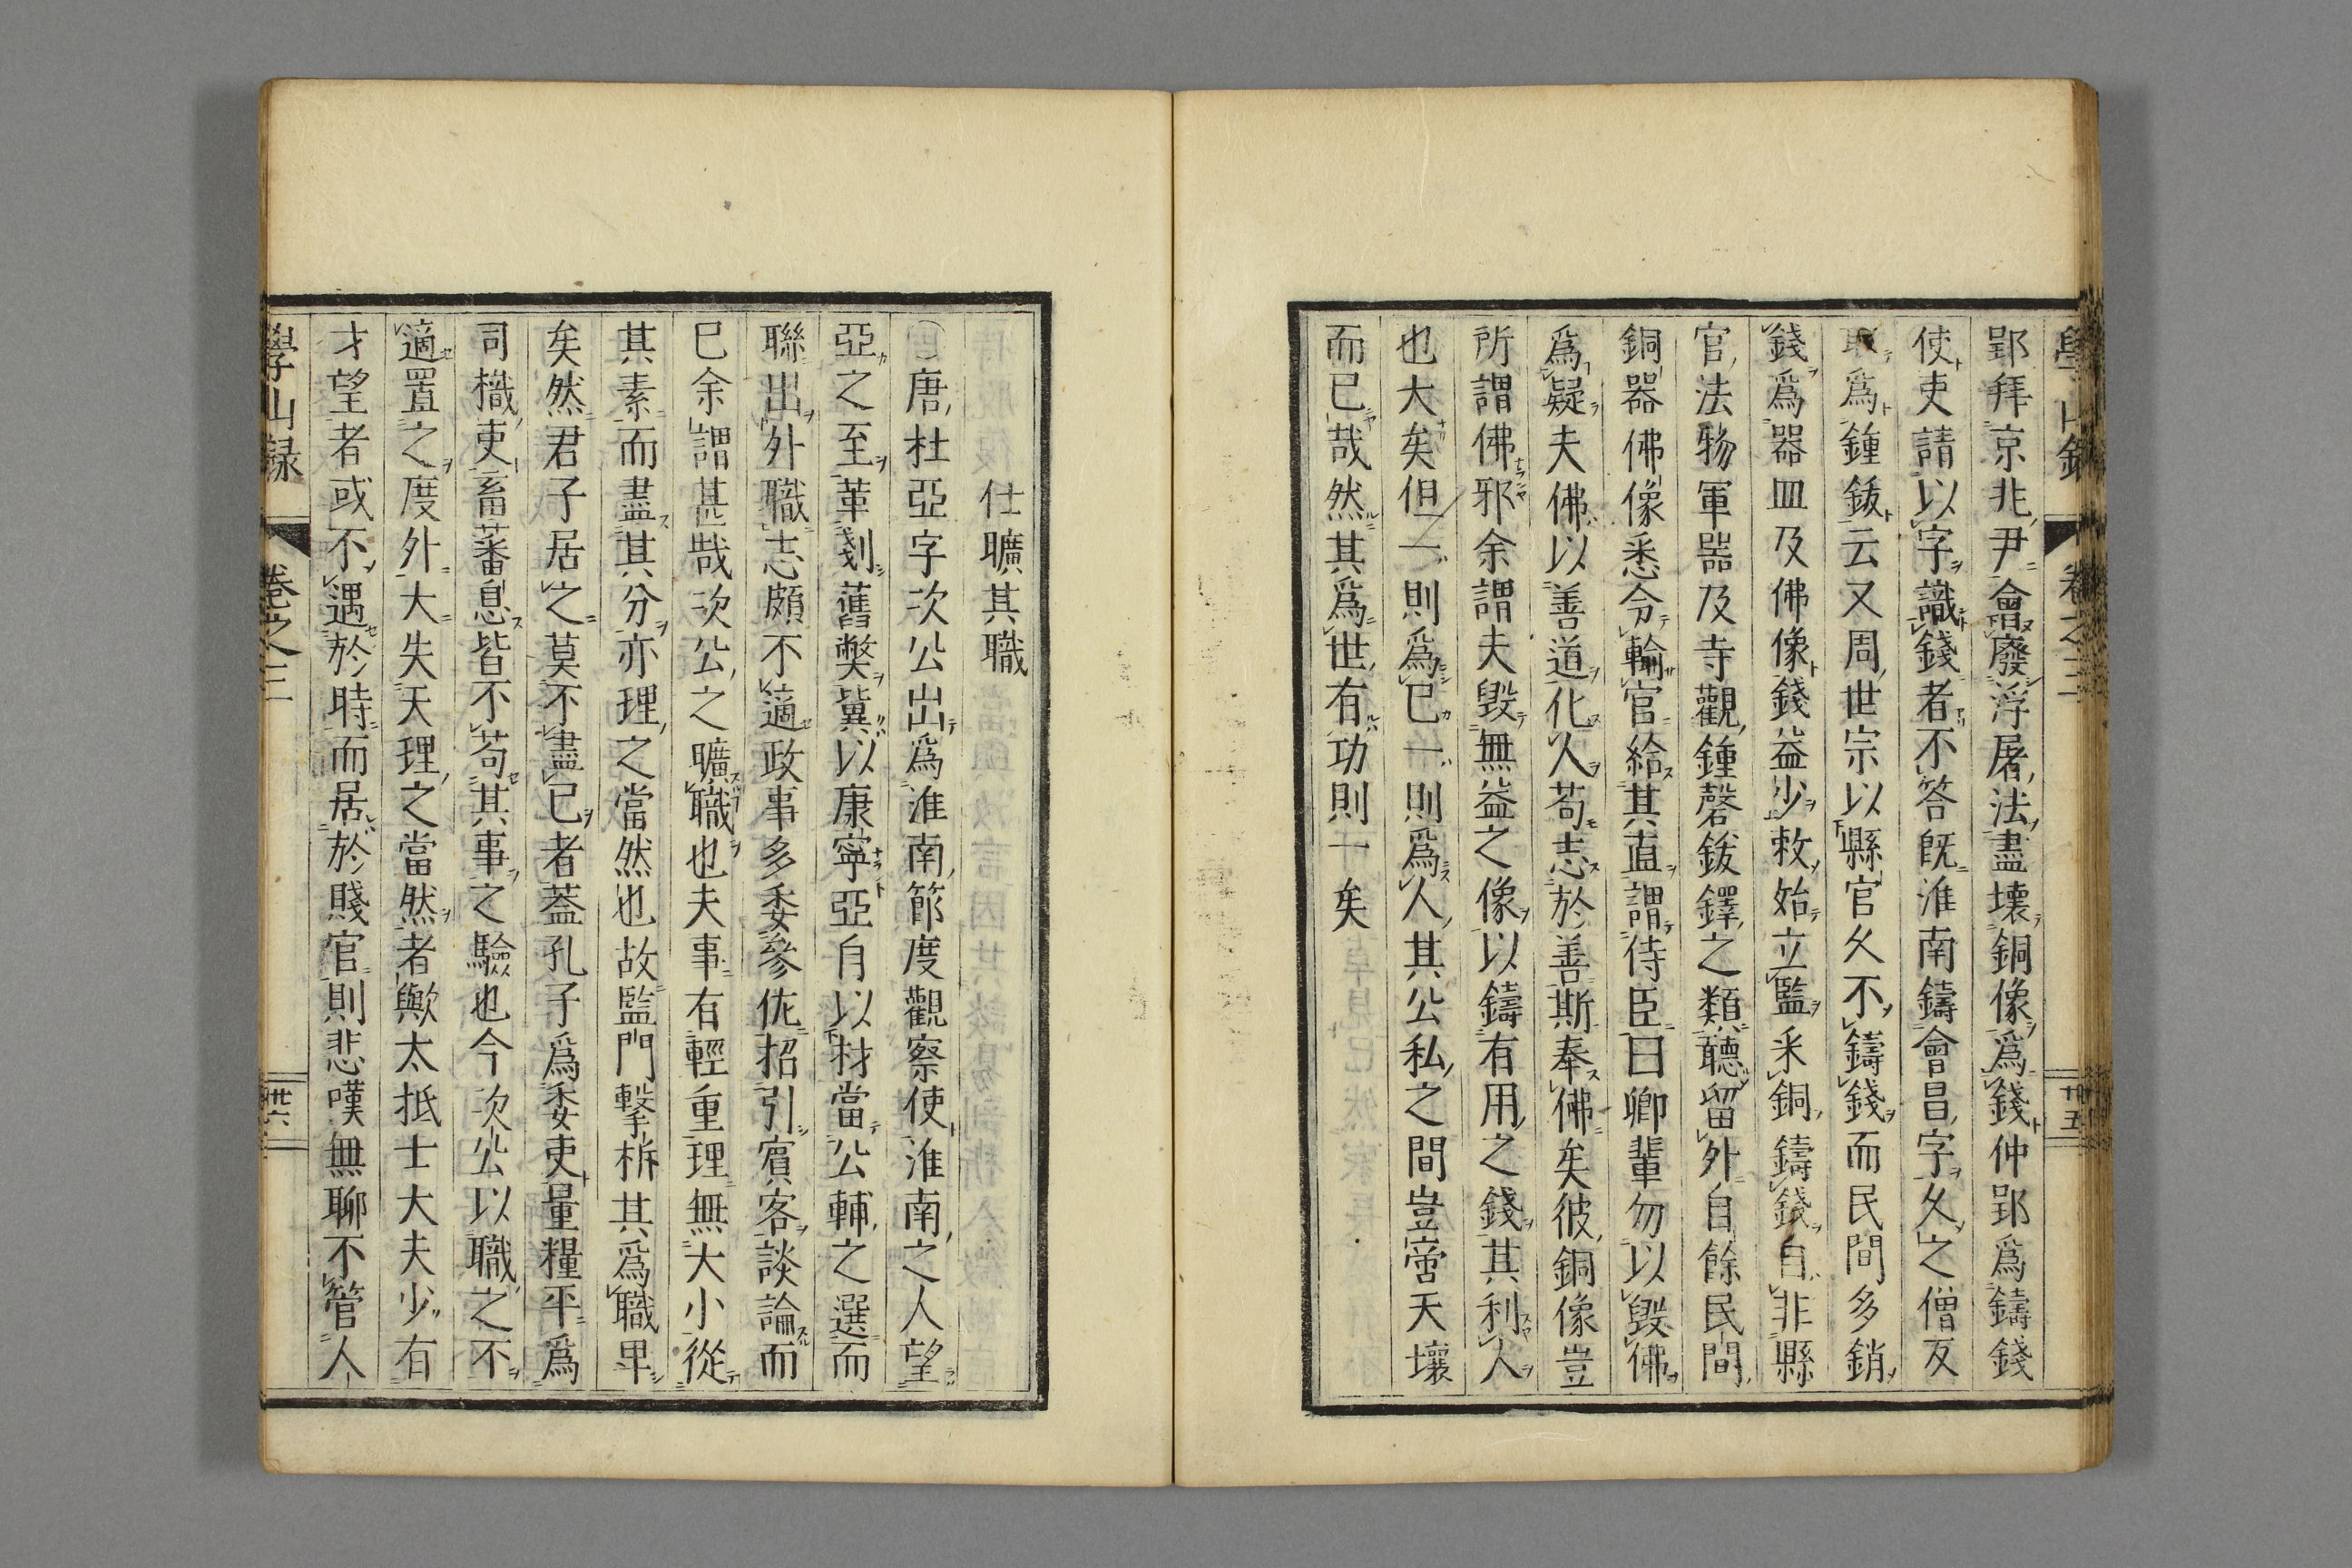 學山錄 卷之三 廿五
郢拜京兆尹會廢浮屠法盡壞銅像爲錢仲郢爲鑄錢
使吏請以字識錢者不答既淮南鑄會昌字久之僧反
取爲鍾鈸云又周世宗以縣官久不鑄錢而民間多銷
錢爲器皿及佛像錢益少敕始立監采銅鑄錢自非縣
官法物軍器及寺觀鍾磬鈸鐸之類聽留外自餘民間
銅器佛像悉令輸官給其直謂侍臣曰卿輩勿以毀佛
爲疑夫佛以善道化人苟志於善斯奉佛矣彼銅像豈
所謂佛邪余謂夫毀無益之像以鑄有用之錢其利人
也大矣但一則爲已一則爲人其公私之間豈啻天壤
而已哉然其爲世有功則一矣
仕曠其職
○唐杜亞字次公出爲淮南節度觀察使淮南之人望
亞之至革剗舊弊冀以康寧亞自以材當公輔之選而
聯出外職志頗不適政事多委參佐招引賓客談論而
已余謂甚哉次公之曠職也夫事有輕重理無大小從
其素而盡其分亦理之當然也故監門擊柝其爲職卑
矣然君子居之莫不盡已者蓋孔子爲委吏量糧平爲
司樴吏畜蕃息皆不苟其事之驗也今次公以職之不
適置之度外大失天理之當然者歟太抵士大夫少有
才望者或不遇於時而居於賤官則悲嘆無聊不管人
學山錄 卷之三 廿六